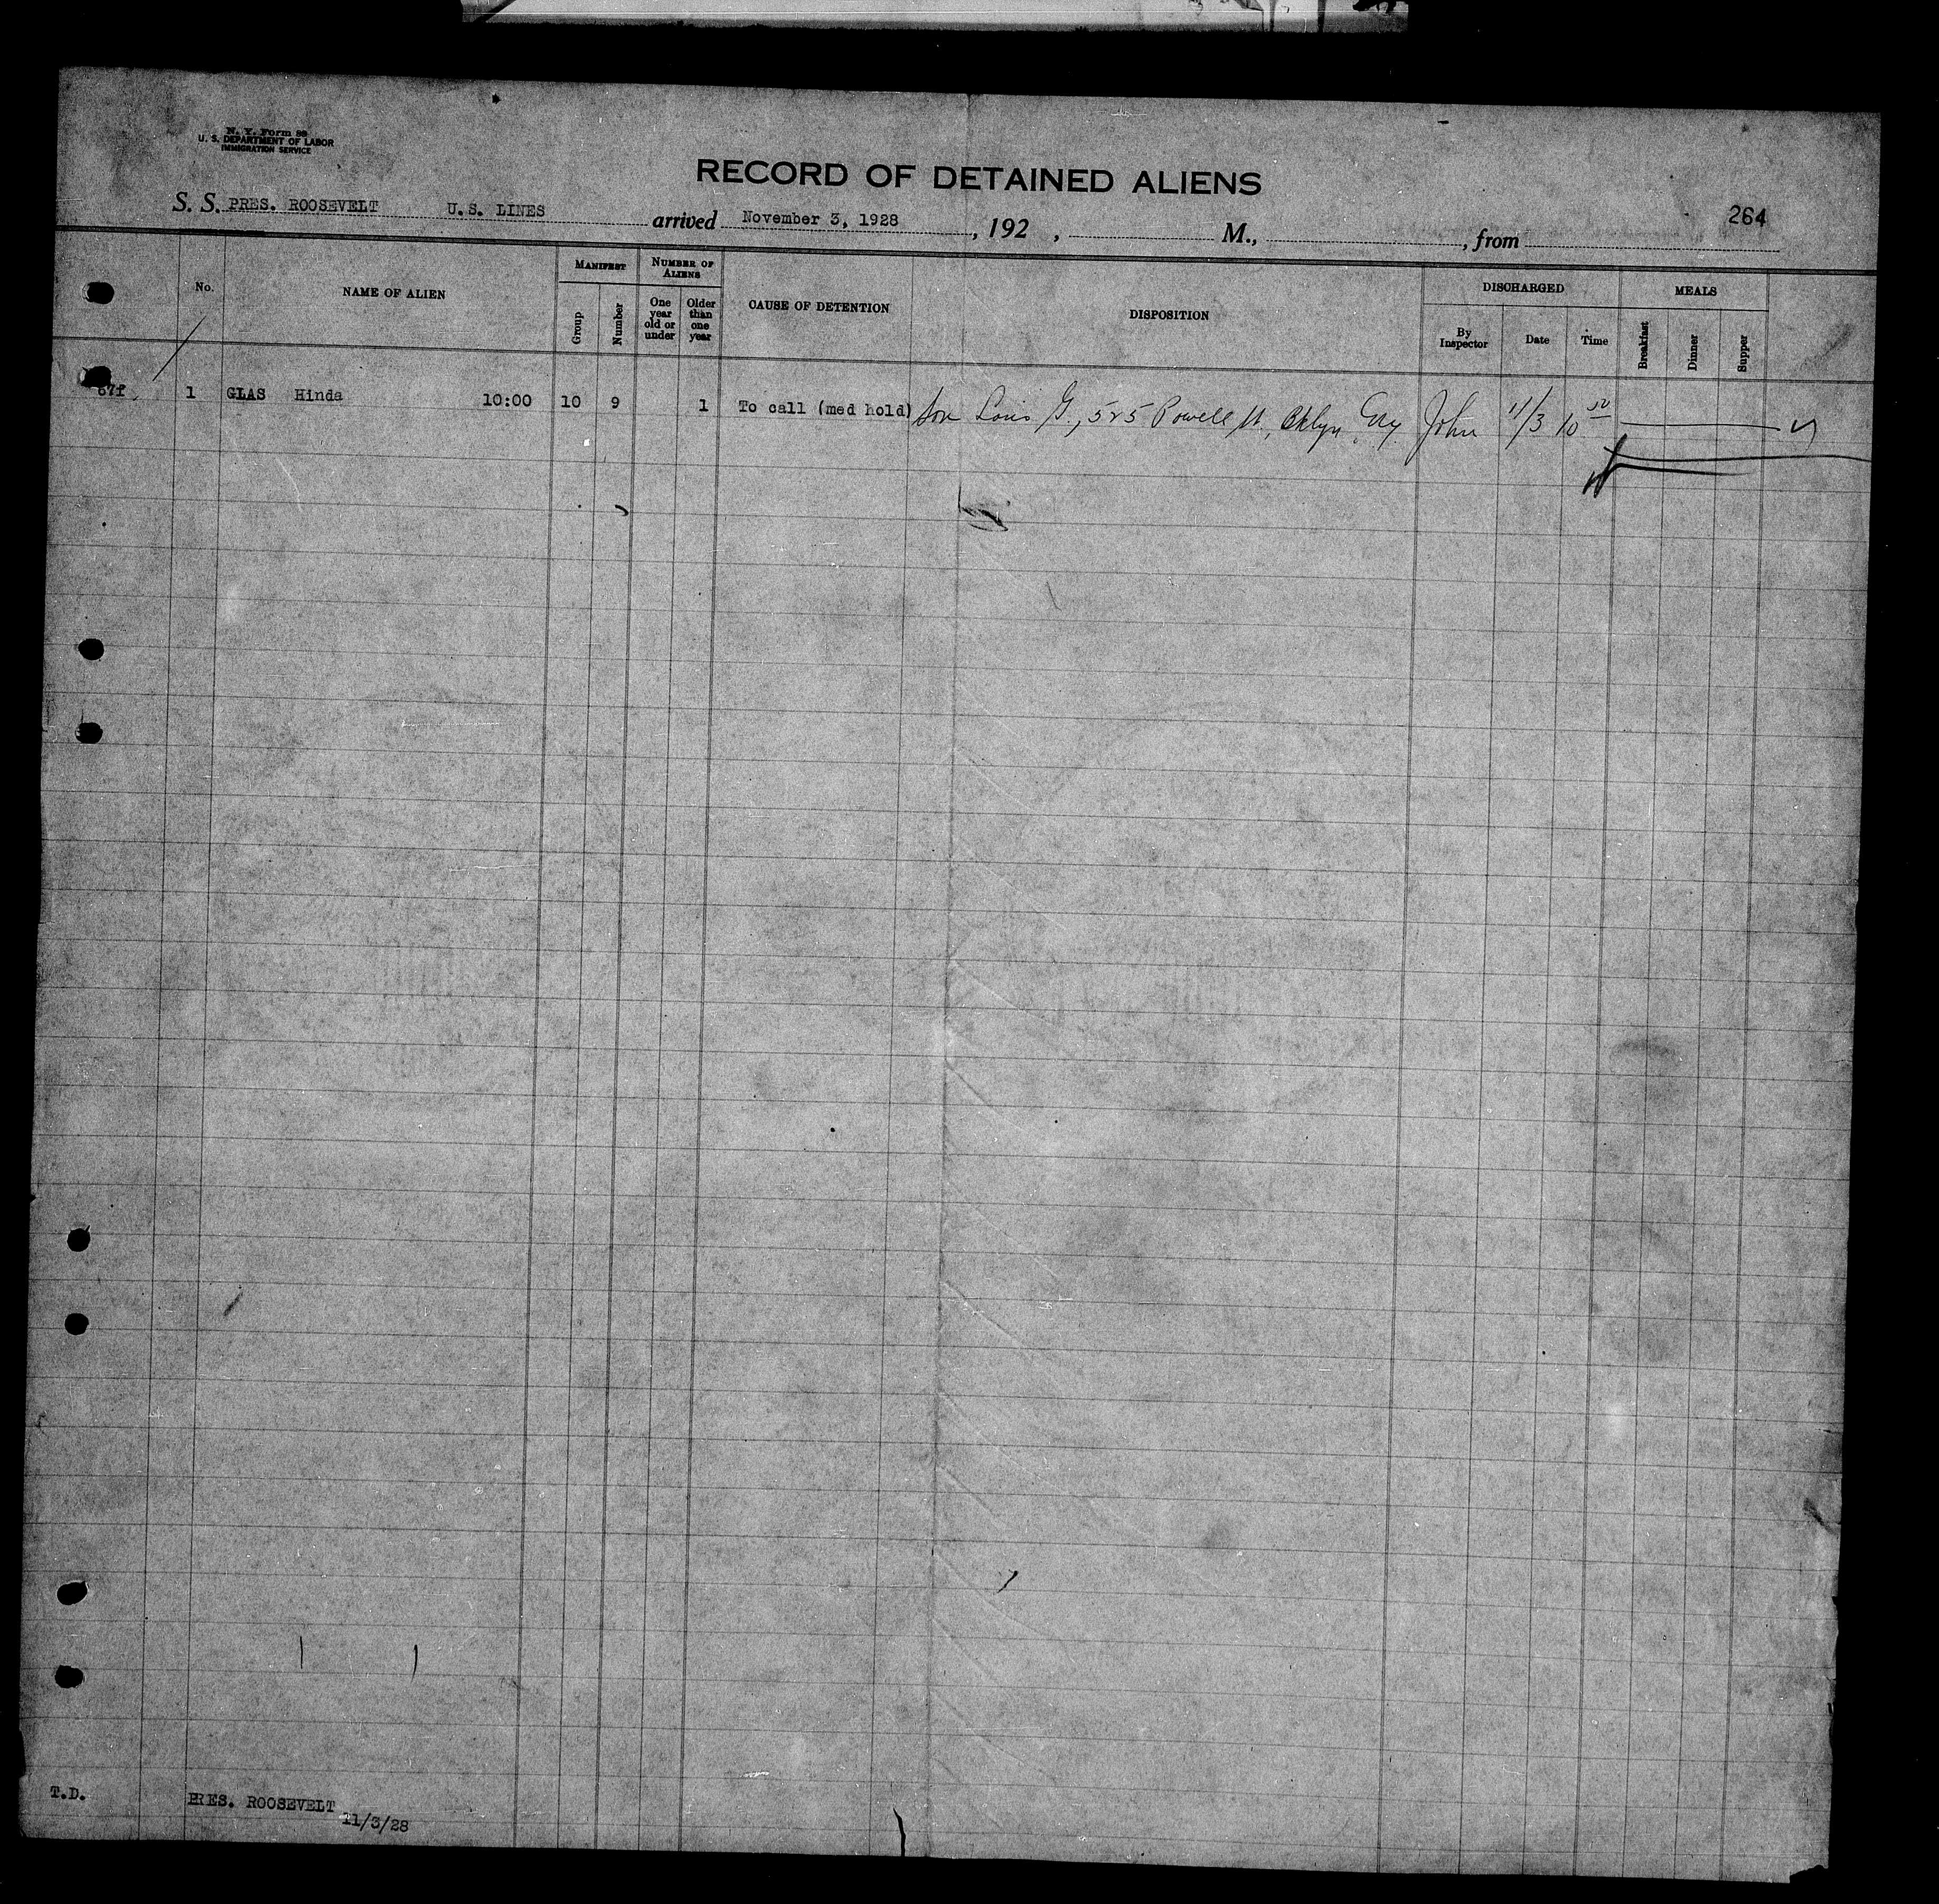 N. Y. Form 89
U. S. DEPARTMENT OF LABOR
IMMIGRATION SERVICE
RECORD OF DETAINED ALIENS
264
S. S. PRES. ROOSEVELT U.S. LINES arrived November 3, 1928, 192 , M., , from
No. NAME OF ALIEN MANIFEST NUMBER OF ALIENS CAUSE OF DETENTION DISPOSITION DISCHARGED MEALS
Group Number One year old or under Older than one year By Inspector Date Time Breakfast Dinner Supper
67f 1 GLAS Hinda 10:00 10 9 1 To call (med hold) Son Louis G., 525 Powell St., Bklyn John 11/3 10 50
T.D. PRES. ROOSEVELT
11/3/28